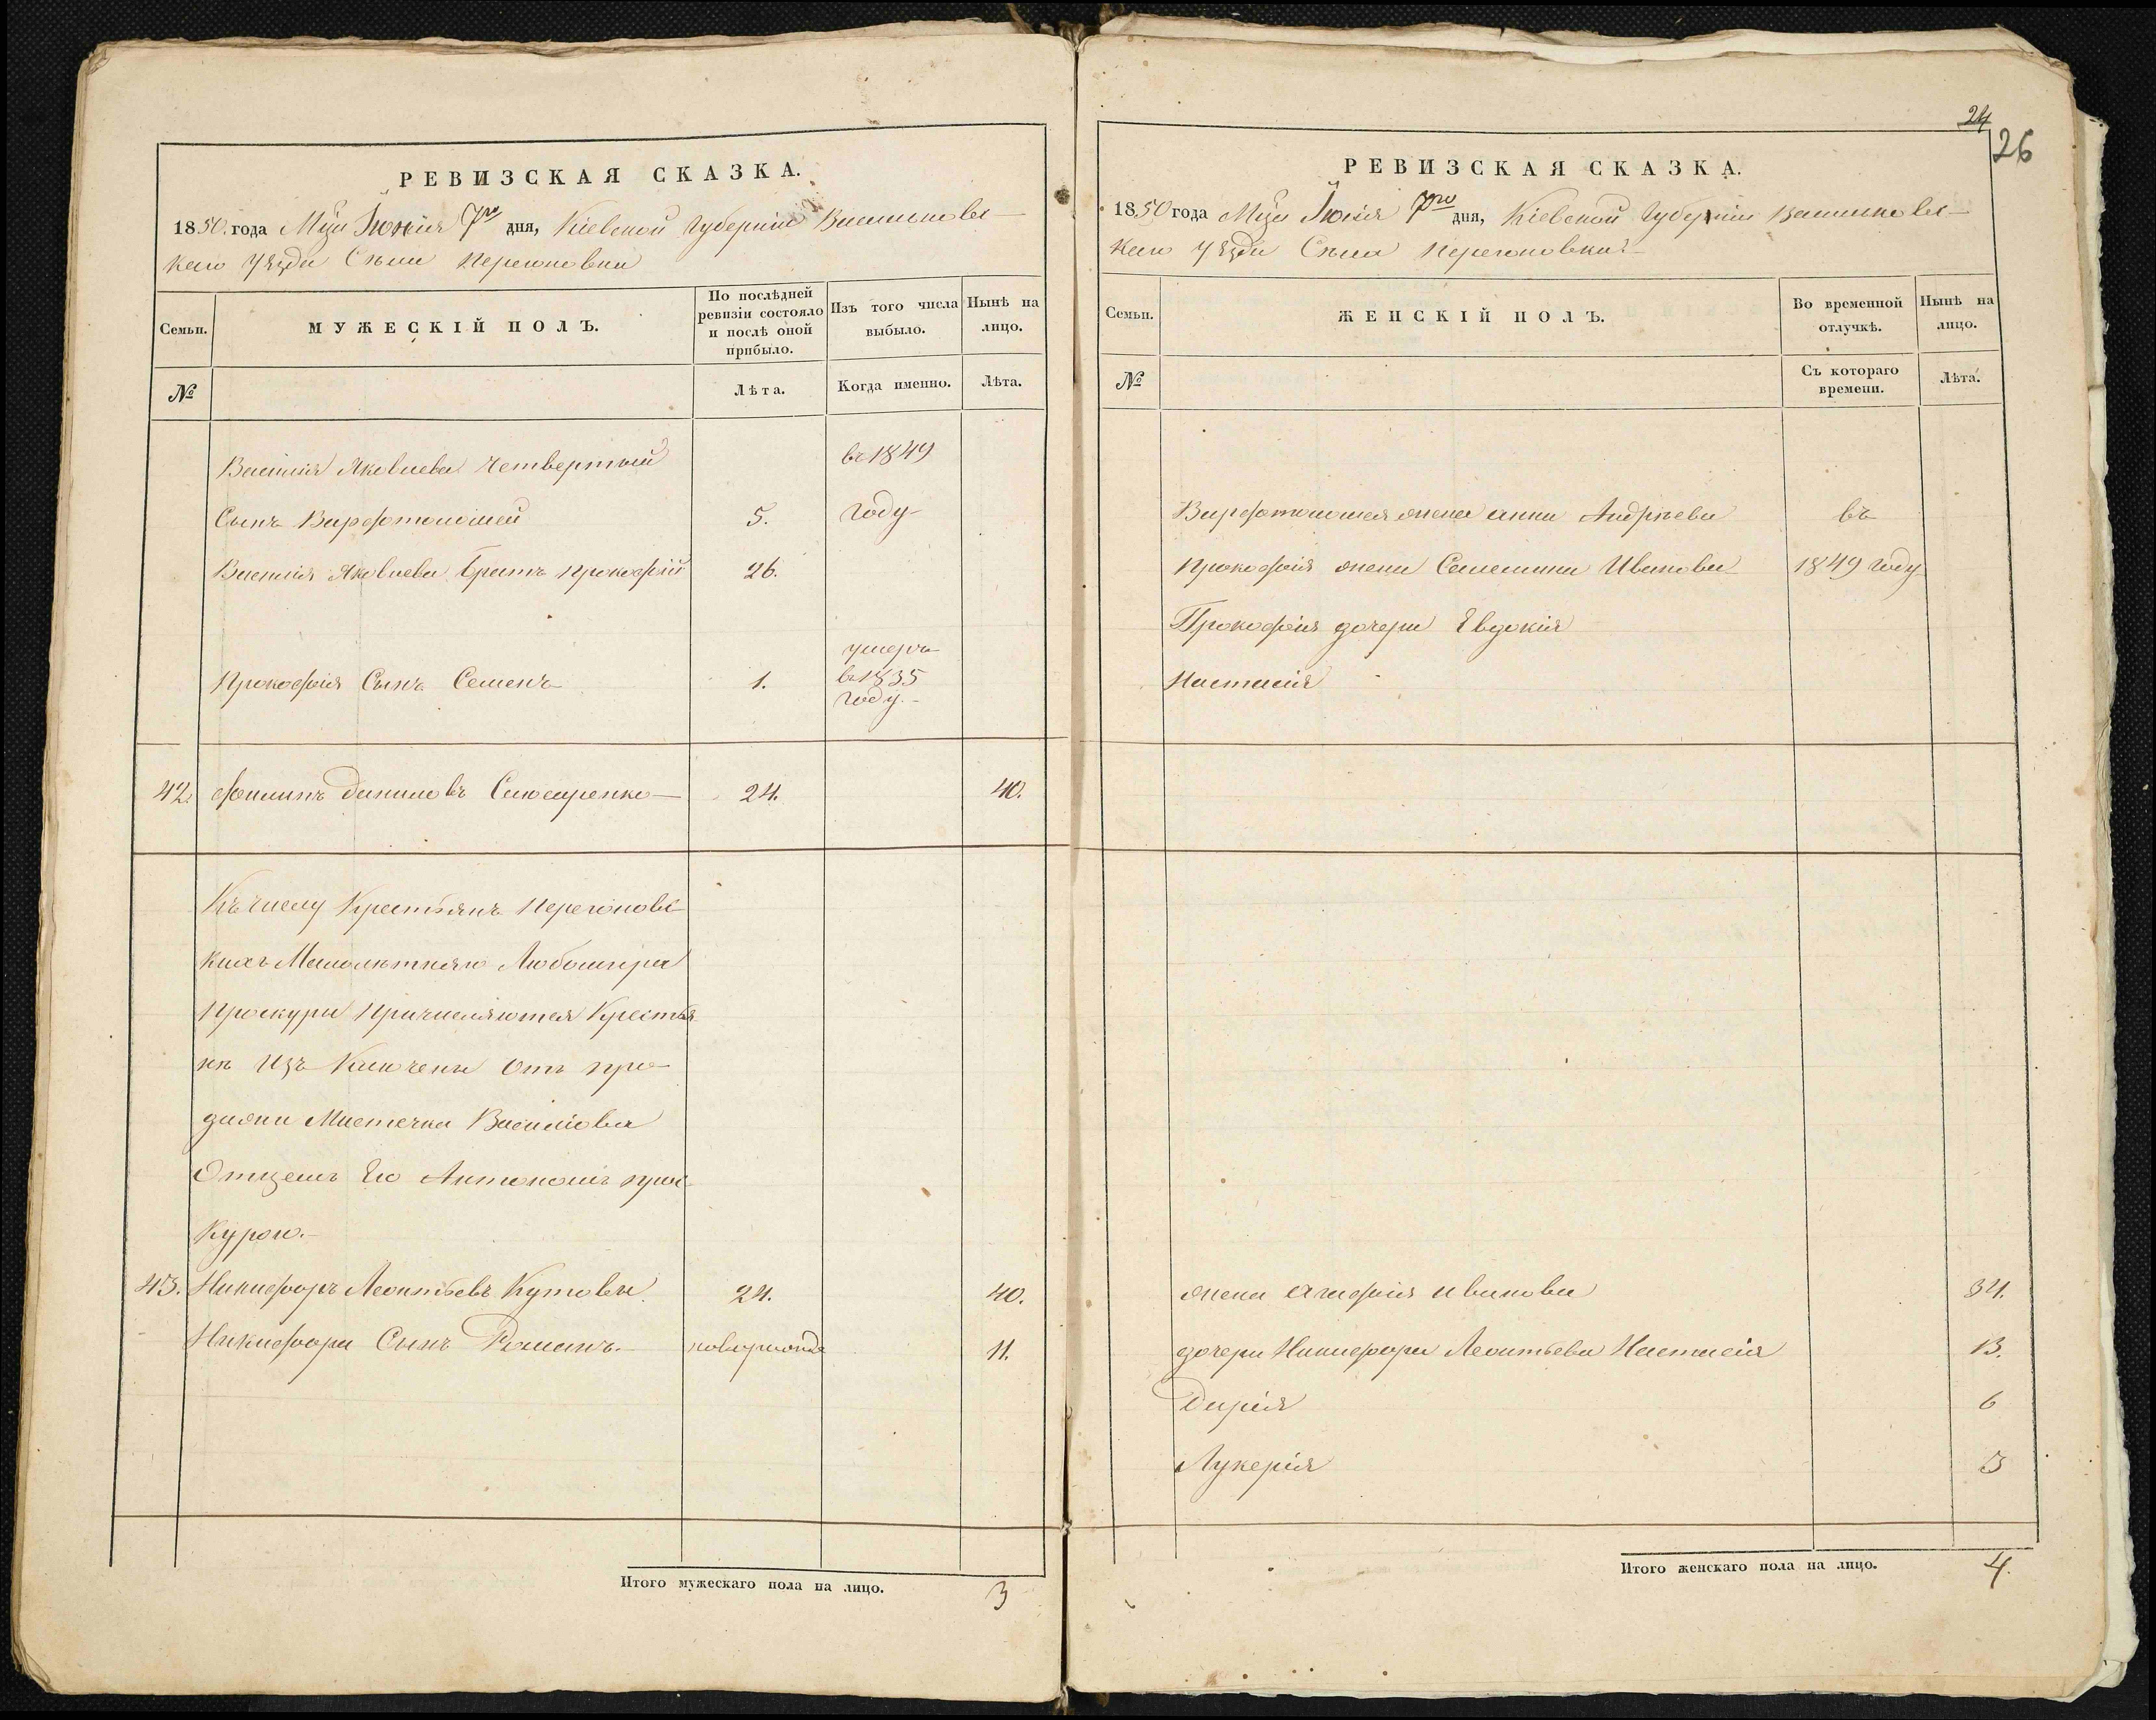 РЕВИЗСКАЯ СКАЗКА.
1850. года Мца Іюнія 7го дня, Кіевской Губерніи Васильковс-
каго Уѣзда Сѣла Перегоновки
Семьи.
МУЖЕСКІЙ ПОЛЪ.
По послѣдней ревизіи состояло и послѣ оной прибыло.
Изъ того числа выбыло.
Нынѣ на лицо.
№
Лѣта.
Когда именно.
Лѣта.
Василія Яковлева четвертый
въ 1849
Сынъ Варфоломей
5.
году-
Василія Яковлева Братъ Прокофій
26.
Прокофія Сынъ Семенъ
1.
умеръ
въ 1835
году.-
42.
Филипъ Даниловъ Слюсаренко
24.
40.
Къ числу Крестьянъ Перегоновс-
кихъ Малолѣтняго Любомира
Проскуры Причисляются Крестья-
нѣ Изъ
Отъ про-
дажи Мистечка Василіова
Отцемъ Его Антономъ прос-
курою.-
43.
Никифоръ Леонтьевъ Кутовы
24.
40.
Никифора Сынъ Романъ.
новорожде
11.
Итого мужескаго пола на лицо.
3
24
26
РЕВИЗСКАЯ СКАЗКА.
1850 года Мца Іюнія 7го дня, Кіевской Губерніи Васильковс-
каго Уѣзда Сѣла Перегоновки
Семьи.
ЖЕНСКІЙ ПОЛЪ.
Во временной отлучкѣ.
Нынѣ на лицо.
№
Съ котораго времени.
Лѣта.
Варфоломея жена Анна Андрѣева
въ
Прокофія жена Иванова
1849 году
Прокофія дочери Евдокія
Настасія
жена Агафія Иванова
34.
дочери Никифора Леонтьева Настасія
13.
Дарія
6
Лукерія
3
Итого женскаго пола на лицо.
4.